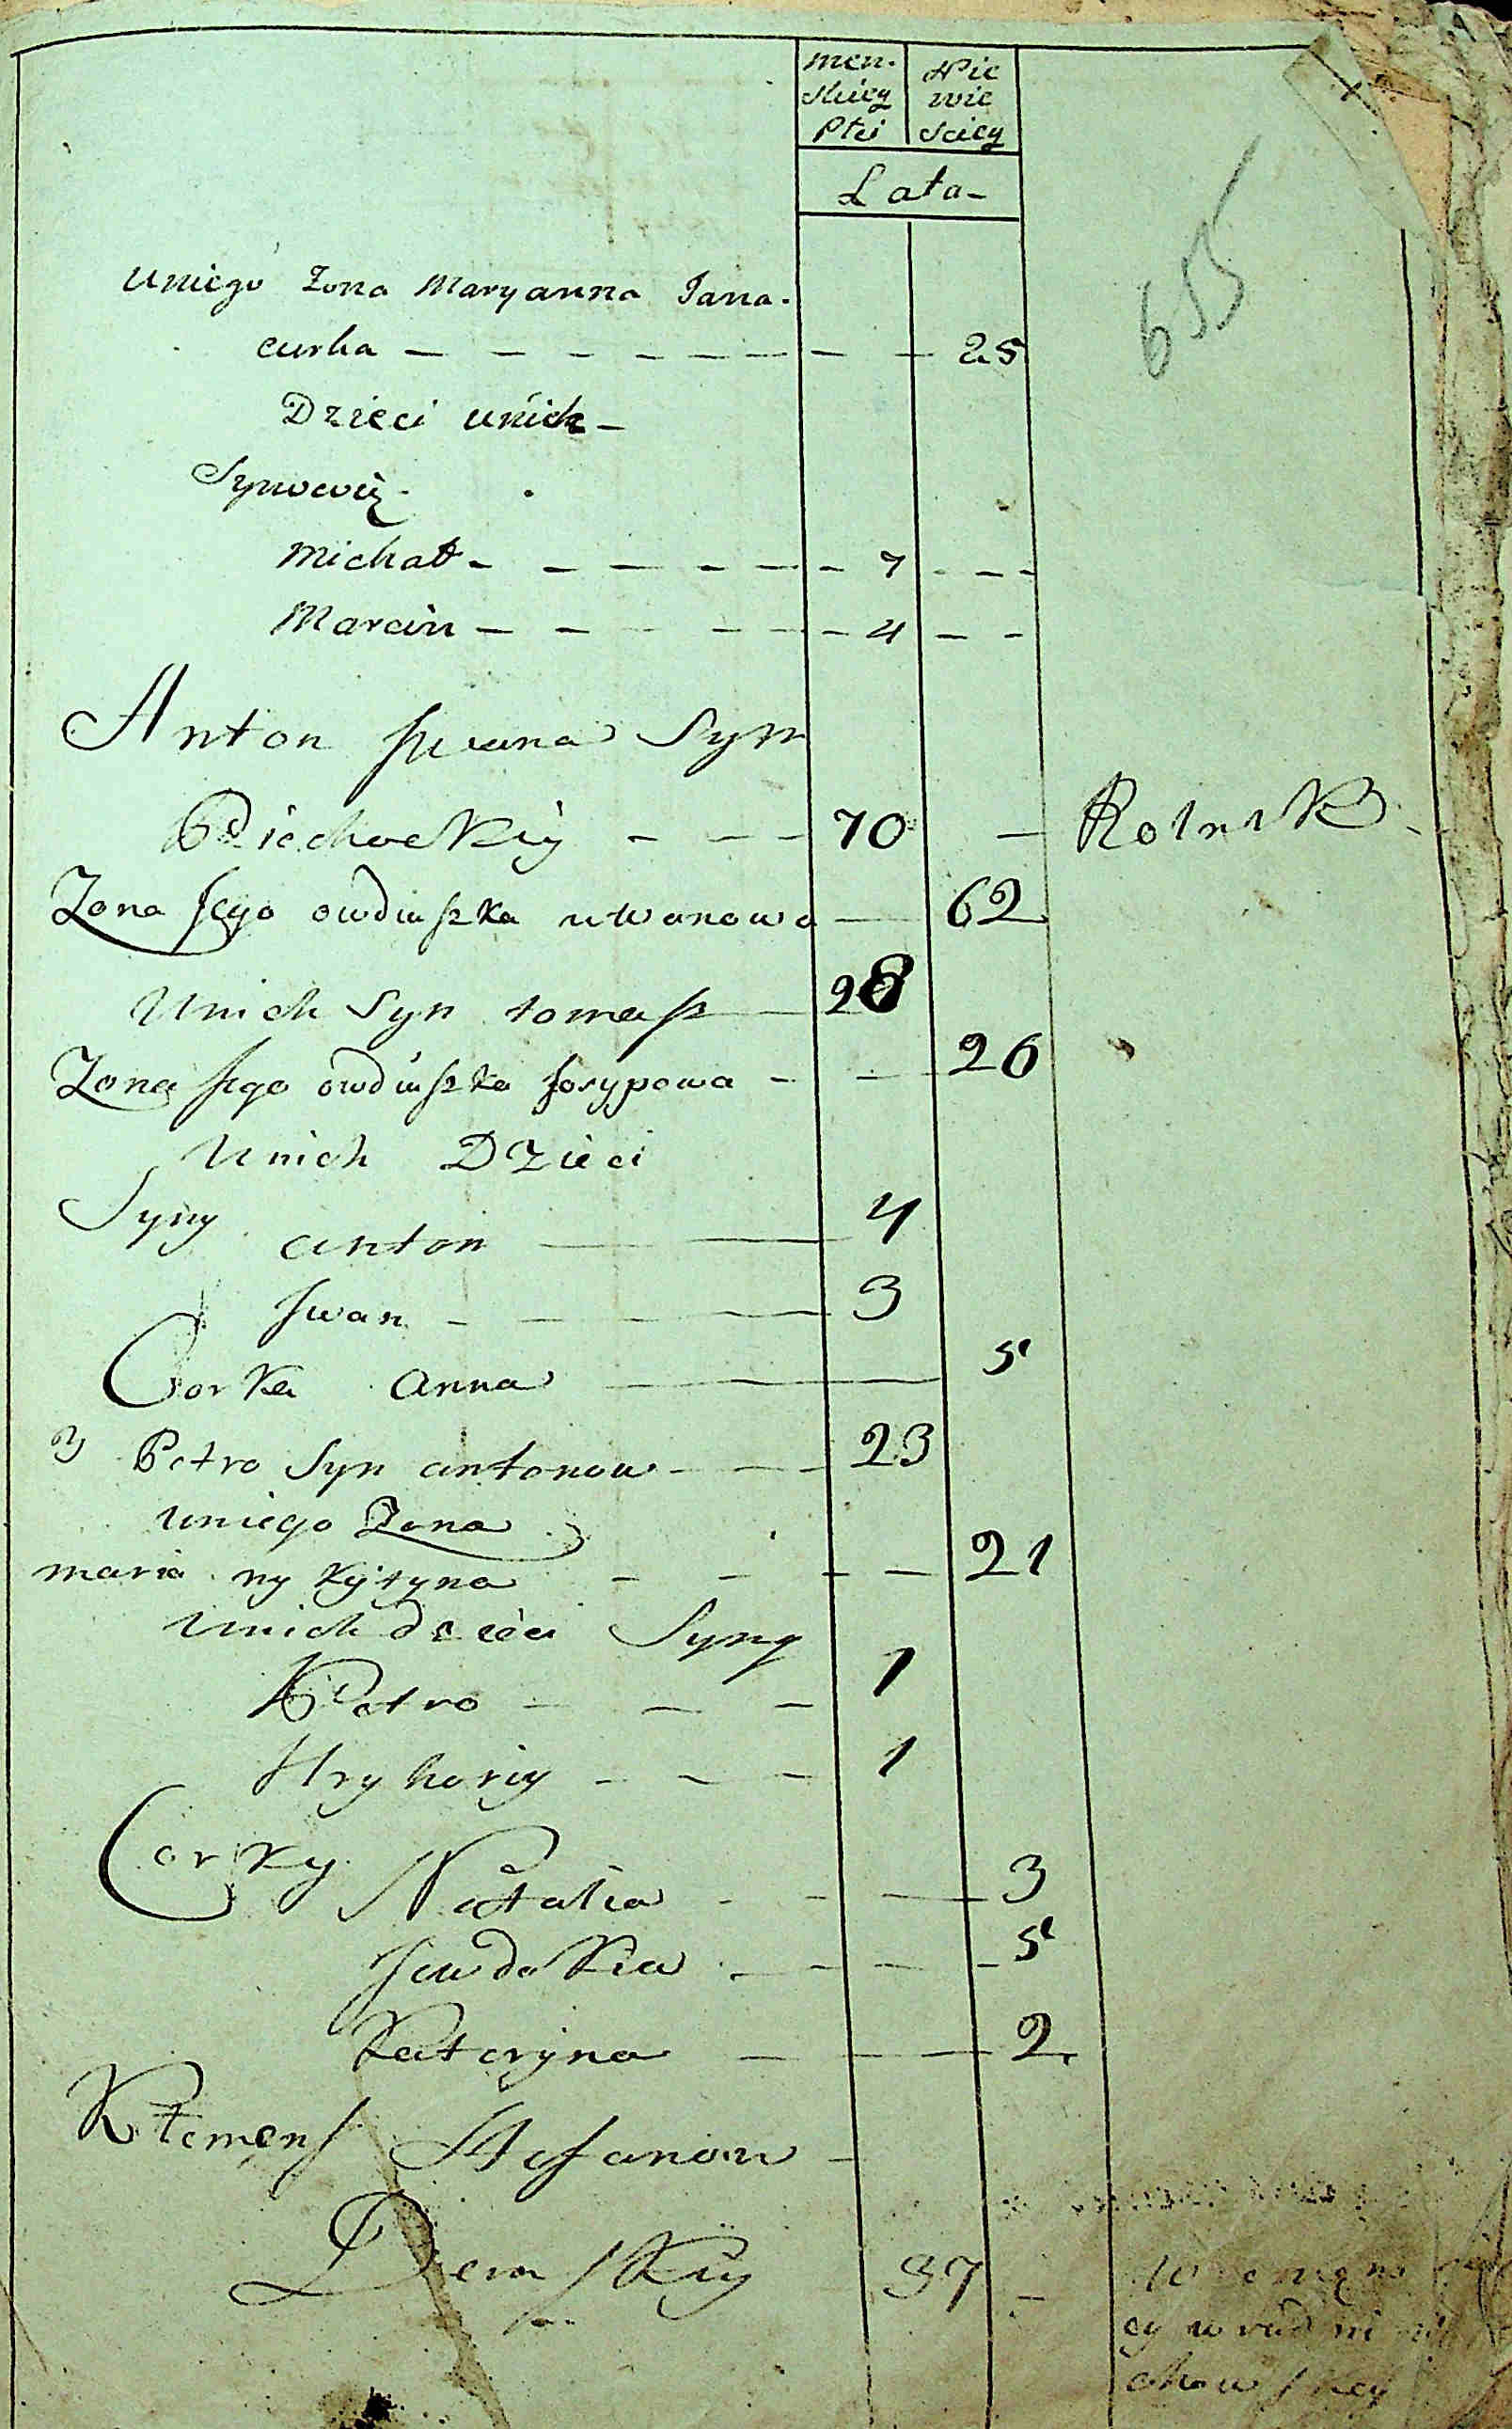 men- Nie
skiey wie
Płci Sciey
Lata-
655
uniego Zona Maryanna Jana-
curka - - - - - - - - 25
Dzieci unich -
Synowie
Michał - - - - - - 7 - - -
Marcin - - - - - - 4 - -
Anton Jwana Syn
Piechockiy - - - 70 - Rolnik
Zona Jego owdiuszka iwanowa - 62
Unich Syn tomasz - 28
Zona Jego owdiuszka Josypowa - - 26
Unich Dzieci
Syny anton - - 4
Jwan - - - - 3
Corka anna - - 5
y Petro Syn antonow - - - 23
uniego Zona
maria nykityna - - - - 21
Unich dzieci Syny
Petro - - - 1
Hryhoriy - - - 1
Corky Natalia - - - 3
Jawdokia - - - - 5
Kateryna - - - 2
Klemens Stefanow -
Demskiy 37 -
cy w rudni